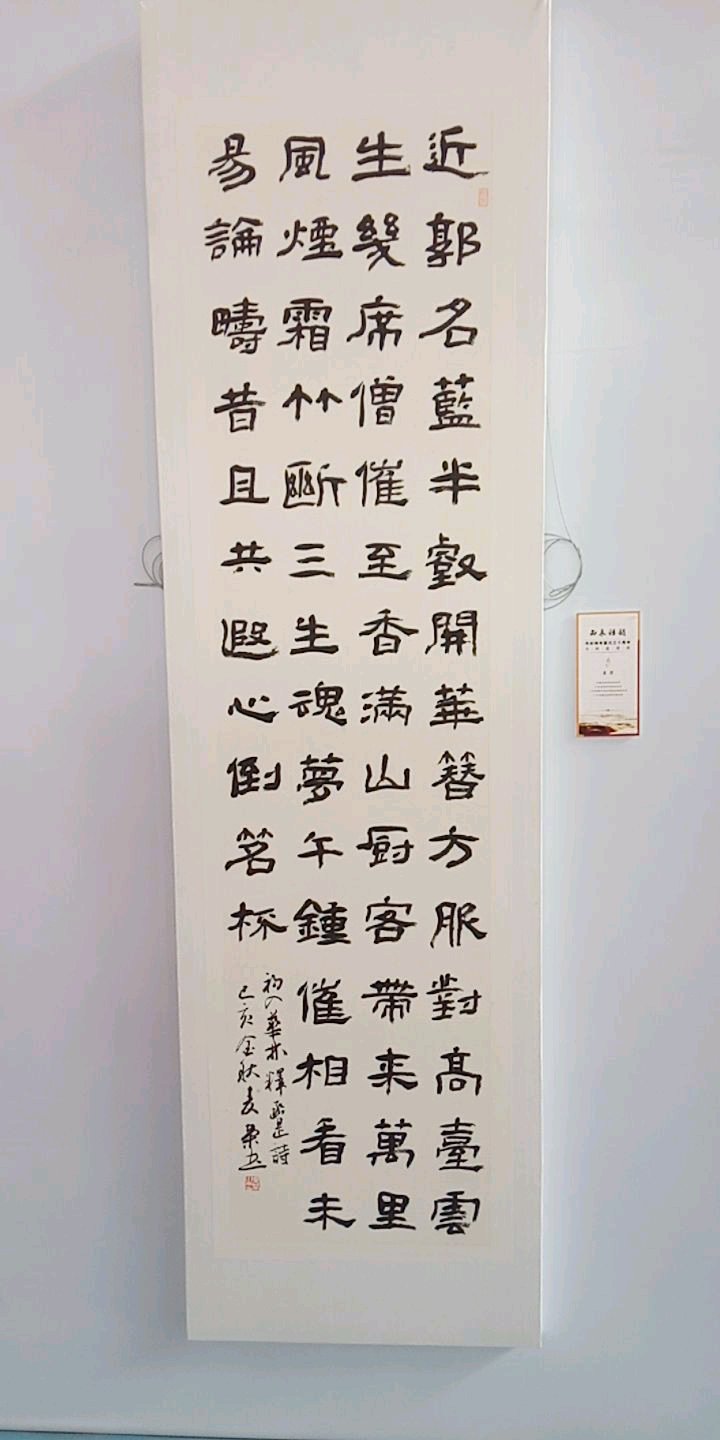 近郭名藍半壑開華簪方服對高臺雲
生幾席僧催至香滿山厨客帶来萬里
風煙霜竹斷三生魂夢午鍾催相看未
易論疇昔且共遐心倒茗杯
初入華林釋函昰詩
己亥金秋麦